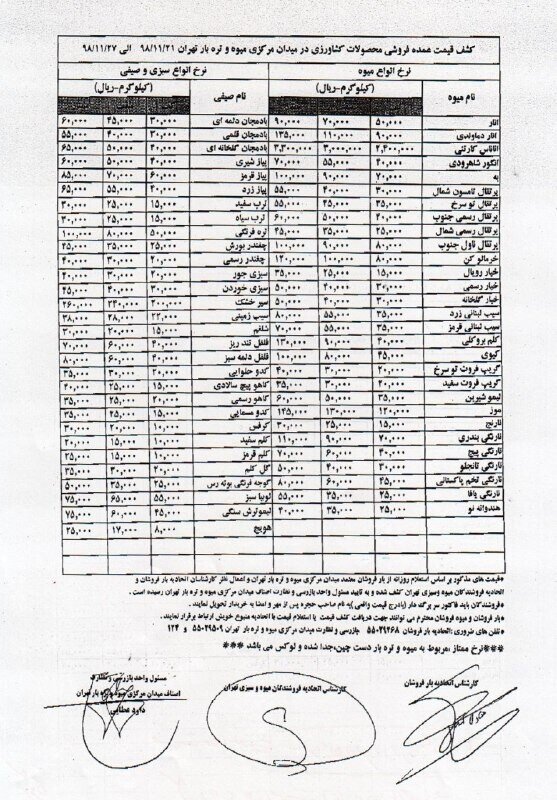 کشف قیمت عمده فروشی محصولات کشاورزی در میدان مرکزی میوه و تره بار تهران ۹۸/۱۱/۲۱ الی ۹۸/۱۱/۲۷
نرخ انواع میوه نرخ انواع سبزی و صیفی
نام میوه (کیلوگرم-ریال) نام صیفی (کیلوگرم-ریال)
انار ۵۰,۰۰۰ ۷۰,۰۰۰ ۹۰,۰۰۰ بادمجان دلمه ای ۳۰,۰۰۰ ۴۵,۰۰۰ ۶۰,۰۰۰
انار دماوندی ۹۰,۰۰۰ ۱۱۰,۰۰۰ ۱۳۵,۰۰۰ بادمجان قلمی ۳۰,۰۰۰ ۴۰,۰۰۰ ۵۵,۰۰۰
آناناس کارتنی ۲,۴۰۰,۰۰۰ ۳,۰۰۰,۰۰۰ ۳,۳۰۰,۰۰۰ بادمجان گلخانه ای ۴۰,۰۰۰ ۵۰,۰۰۰ ۶۵,۰۰۰
انگور شاهرودی ۴۰,۰۰۰ ۵۵,۰۰۰ ۷۰,۰۰۰ پیاز شیری ۴۰,۰۰۰ ۵۰,۰۰۰ ۶۰,۰۰۰
به ۷۰,۰۰۰ ۹۰,۰۰۰ ۱۰۰,۰۰۰ پیاز قرمز ۶۰,۰۰۰ ۷۰,۰۰۰ ۸۵,۰۰۰
پرتقال تامسون شمال ۳۰,۰۰۰ ۴۰,۰۰۰ ۵۵,۰۰۰ پیاز زرد ۴۰,۰۰۰ ۵۵,۰۰۰ ۶۵,۰۰۰
پرتقال تو سرخ ۳۵,۰۰۰ ۴۵,۰۰۰ ۵۵,۰۰۰ ترب سفید ۱۵,۰۰۰ ۲۰,۰۰۰ ۳۰,۰۰۰
پرتقال رسمی جنوب ۴۰,۰۰۰ ۵۰,۰۰۰ ۶۰,۰۰۰ ترب سیاه ۱۵,۰۰۰ ۲۰,۰۰۰ ۳۰,۰۰۰
پرتقال رسمی شمال ۲۵,۰۰۰ ۳۵,۰۰۰ ۴۵,۰۰۰ تره فرنگی ۵۰,۰۰۰ ۸۰,۰۰۰ ۱۰۰,۰۰۰
پرتقال ناول جنوب ۸۰,۰۰۰ ۹۰,۰۰۰ ۱۰۰,۰۰۰ چغندر بورش ۲۵,۰۰۰ ۳۵,۰۰۰ ۴۵,۰۰۰
خرمالو کن ۸۰,۰۰۰ ۱۰۰,۰۰۰ ۱۲۰,۰۰۰ چغندر رسمی ۲۰,۰۰۰ ۳۰,۰۰۰ ۴۰,۰۰۰
خیار رویال ۱۵,۰۰۰ ۲۵,۰۰۰ ۳۵,۰۰۰ سبزی جور ۲۰,۰۰۰ ۳۰,۰۰۰ ۴۰,۰۰۰
خیار رسمی ۳۰,۰۰۰ ۴۰,۰۰۰ ۵۰,۰۰۰ سبزی خوردن ۳۰,۰۰۰ ۴۰,۰۰۰ ۴۵,۰۰۰
خیار گلخانه ۳۰,۰۰۰ ۴۰,۰۰۰ ۵۰,۰۰۰ سیر خشک ۲۰۰,۰۰۰ ۲۴۰,۰۰۰ ۲۶۰,۰۰۰
سیب لبنانی زرد ۳۵,۰۰۰ ۵۵,۰۰۰ ۸۰,۰۰۰ سیب زمینی ۲۲,۰۰۰ ۲۸,۰۰۰ ۳۸,۰۰۰
سیب لبنانی قرمز ۳۵,۰۰۰ ۵۵,۰۰۰ ۷۰,۰۰۰ شلغم ۱۵,۰۰۰ ۲۰,۰۰۰ ۳۰,۰۰۰
کلم بروکلی ۴۰,۰۰۰ ۹۰,۰۰۰ ۱۳۰,۰۰۰ فلفل تند ریز ۴۰,۰۰۰ ۶۰,۰۰۰ ۷۰,۰۰۰
کیوی ۴۵,۰۰۰ ۸۰,۰۰۰ ۱۰۰,۰۰۰ فلفل دلمه سبز ۴۰,۰۰۰ ۶۰,۰۰۰ ۸۰,۰۰۰
گریپ فروت تو سرخ ۲۰,۰۰۰ ۳۰,۰۰۰ ۴۰,۰۰۰ کدو حلوایی ۲۰,۰۰۰ ۳۰,۰۰۰ ۳۵,۰۰۰
گریپ فروت سفید ۲۰,۰۰۰ ۳۰,۰۰۰ ۳۵,۰۰۰ کاهو پیچ سالادی ۱۵,۰۰۰ ۲۵,۰۰۰ ۴۰,۰۰۰
لیمو شیرین ۳۵,۰۰۰ ۵۰,۰۰۰ ۶۰,۰۰۰ کاهو رسمی ۲۰,۰۰۰ ۲۵,۰۰۰ ۳۵,۰۰۰
موز ۱۲۰,۰۰۰ ۱۳۰,۰۰۰ ۱۴۵,۰۰۰ کدو مسمایی ۱۵,۰۰۰ ۲۵,۰۰۰ ۳۵,۰۰۰
نارنج ۱۵,۰۰۰ ۲۵,۰۰۰ ۳۰,۰۰۰ کرفس ۱۰,۰۰۰ ۲۰,۰۰۰ ۳۰,۰۰۰
نارنگی بندری ۷۰,۰۰۰ ۹۰,۰۰۰ ۱۱۰,۰۰۰ کلم سفید ۱۰,۰۰۰ ۱۵,۰۰۰ ۲۰,۰۰۰
نارنگی پیچ ۴۰,۰۰۰ ۶۰,۰۰۰ ۷۰,۰۰۰ کلم قرمز ۱۰,۰۰۰ ۱۵,۰۰۰ ۲۵,۰۰۰
نارنگی تانجلو ۳۰,۰۰۰ ۴۰,۰۰۰ ۵۰,۰۰۰ گل کلم ۲۰,۰۰۰ ۳۰,۰۰۰ ۳۵,۰۰۰
نارنگی تخم پاکستانی ۴۵,۰۰۰ ۶۰,۰۰۰ ۸۰,۰۰۰ گوجه فرنگی بوته رس ۲۵,۰۰۰ ۳۵,۰۰۰ ۵۰,۰۰۰
نارنگی یافا ۲۵,۰۰۰ ۳۵,۰۰۰ ۵۵,۰۰۰ لوبیا سبز ۵۵,۰۰۰ ۶۵,۰۰۰ ۷۵,۰۰۰
هندوانه نو ۲۵,۰۰۰ ۳۵,۰۰۰ ۴۰,۰۰۰ لیموترش سنگی ۴۵,۰۰۰ ۶۰,۰۰۰ ۷۵,۰۰۰
هویج ۸,۰۰۰ ۱۷,۰۰۰ ۲۵,۰۰۰
*قیمت های مذکور بر اساس استعلام روزانه از بار فروشان معتمد میدان مرکزی میوه و تره بار تهران و اعمال نظر کارشناسان اتحادیه بار فروشان و
اتحادیه فروشندگان میوه وسبزی تهران کشف شده و به تایید مسئول واحد بازرسی و نظارت اصناف میدان مرکزی میوه و تره بار تهران رسیده است .
*فروشندگان باید فاکتور سر برگه دار (بادرج قیمت واقعی )به نام صاحب حجره پس از مهر و امضا به خریدار تحویل نمایند .
*بار فروشان و میوه فروشان محترم می توانند جهت دریافت کشف قیمت یا استعلام قیمت با اتحادیه متبوع خویش ارتباط برقرار نمایند .
*تلفن های ضروری :اتحادیه بار فروشان ۵۵۰۲۹۴۶۸ بازرسی و نظارت میدان مرکزی میوه و تره بار تهران ۵۵۰۲۹۵۰۹ و ۱۲۴
***نرخ ممتاز ،مربوط به میوه و تره بار دست چین،جدا شده و لوکس می باشد ***
کارشناس اتحادیه بار فروشان
کارشناس اتحادیه فروشندگان میوه و سبزی تهران
مسئول واحد بازرسی و نظارت
اصناف میدان مرکزی میوه و تره بار تهران
داود عطایی